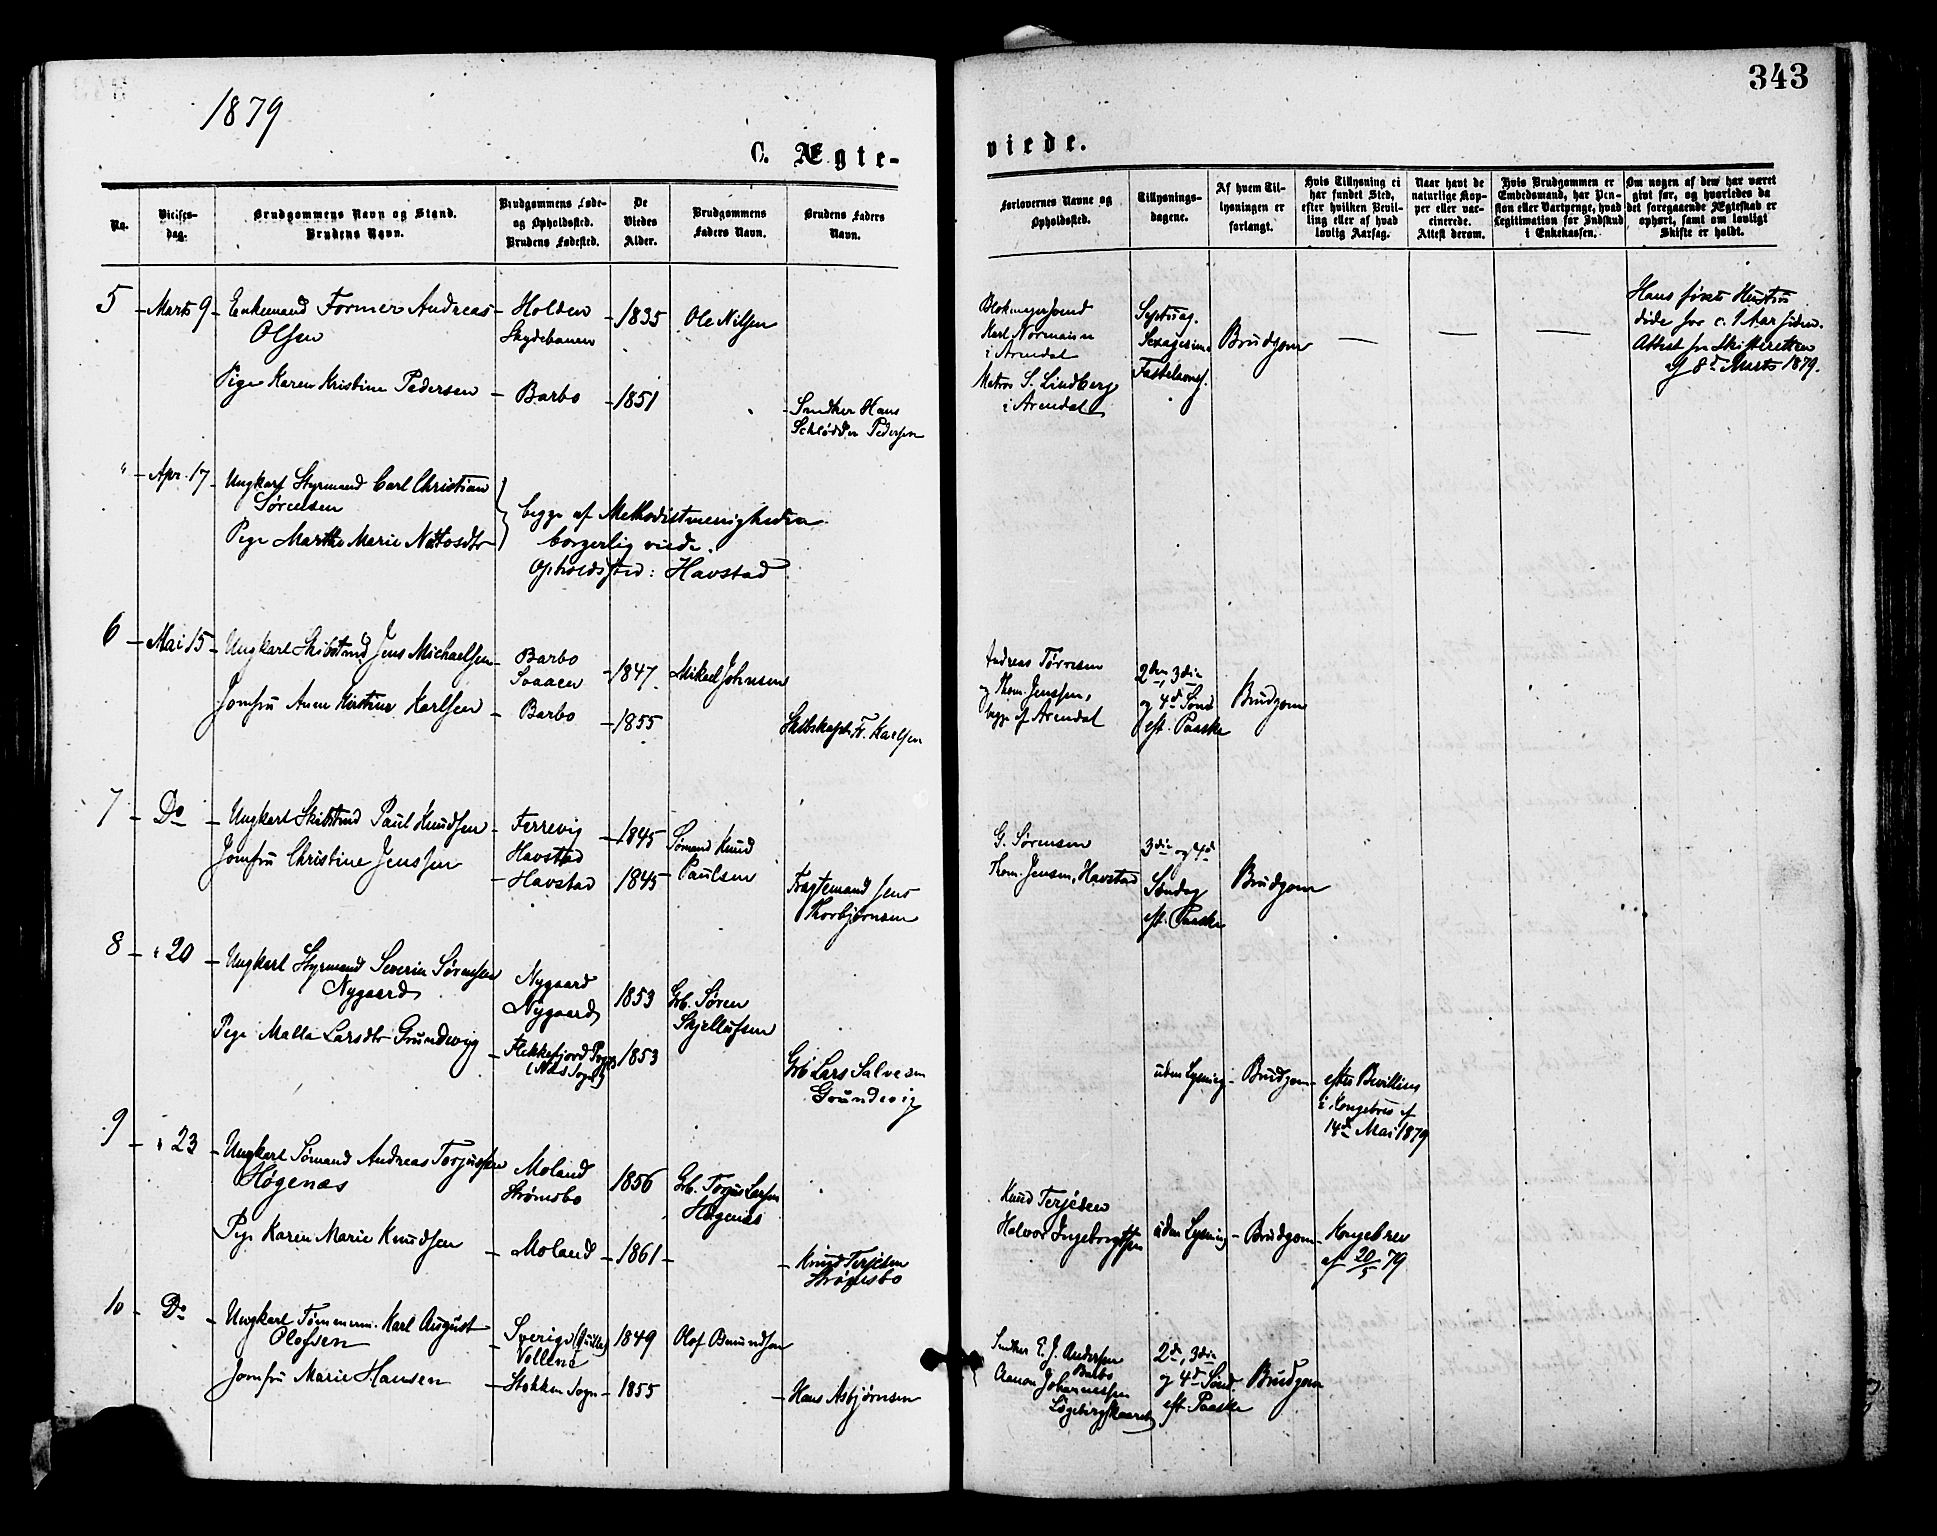 343
1879
C. Ægte-
viede.
No.
Vielses-
dag.
Brudgommens Navn og Stand.
Brudens Navn.
Brudgommens Føde-
og Opholdssted.
Brudens Fødested.
De
Viedes
Alder.
Brudgommens
Faders Navn.
Brudens Faders
Navn.
Forlovernes Navne og
Opholdssted.
Tillysnings-
dagene.
Af hvem Til-
lysningen er
forlangt.
Hvis Tillysning ei
har fundet Sted,
efter hvilken Bevil-
ling eller af hvad
lovlig Aarsag.
Naar havt de
naturlige Kop-
per eller vac-
cinerede.
Attest derom.
Hvis Brudgommen er
Embedsmand, har Pen-
sion eller Vartpenge, hvad
Legitimation for Indskud
i Enkekassen.
Om nogen af dem har været
gift før, og hvorledes da
det foregaaende Ægteskab er
ophørt, samt om lovligt
Skifte er holdt.
5 Marts 9 Enkemand Former Andreas
Olsen
Holden
Skydebanen
1835 Ole Nilsen
Pige Karen Kristine Pedersen Barbo 1851
Snedker Hans
Schlødder Pedersen
Blokmagersvend
Karl Normann
i Arendal
Matros S. Lindberg
i Arendal
Septuag.
Sexagesima
Fastelavns.
Brudgom — — —
Hans første Hustru
døde for c. 1 Aar siden.
Attest fra Skifteretten
af 8de Marts 1879.
" Apr. 17 Ungkarl Styrmand Carl Christian
Sørensen
Pige Marthe Marie Nottosdtr
begge af Methodistmenigheden
borgerlig viede.
Opholdssted: Havstad
6 Mai 15 Ungkarl Skibstmd Jens Michaelsen
Barbo
Svaaen
1847 Mikael Johnsen
Jomfru Anne Kirstine Karlsen Barbo 1855
Skibskapt. Fr. Karlsen
Andreas Tørresen
og Thom. Jenssen,
begge af Arendal
2den, 3die
og 4de Sønd
eft. Paaske
Brudgom
7 Do Ungkarl Skibstmd Paul Knudsen
Ferrevig
Havstad
1845 Sømand Knud
Paulsen
Jomfru Christine Jenssen Havstad 1845
Fragtemand Jens
Thorbjørnsen
G. Sørensen
Thom. Jensen, Havstad
3die og 4de
Søndag
eft. Paaske
Brudgom
8 " 20 Ungkarl Styrmand Severin Sørensen
Nygaard
Nygaard
Nygaard
1853 Grb. Søren
Skjellufsen
Pige Malla Larsdtr Grundevig
Flekkefjord Prgj.
(Næs Sogn)
1853
Grb Lars Salvesen
Grundevig
uden Lysning Brudgom
efter Bevilling
i Kongebrev af
14de Mai 1879
9 " 23 Ungkarl Sømand Andreas Torjussen
Høgenæs
Moland
Strømsbo
1856 Grb. Torjus Larsen
Høgenæs
Pige Karen Marie Knudsen Moland 1861
Knud Terjesen
Strømsbo
Knud Terjesen
Halvor Ingebregtsen
uden Lysning Brudgom
Kongebrev
af 20/5 79
10 Do Ungkarl Tømmerm. Karl August
Olofsen
Sverige
1849 Olof Bmundsen
Jomfru Marie Hansen Stokken Sogn 1855
Hans Asbjørnsen
Snedker E. J. Andersen
Barbo
Aanon Johannessen
2de, 3die
og 4de Sønd.
eft. Paaske
Brudgom